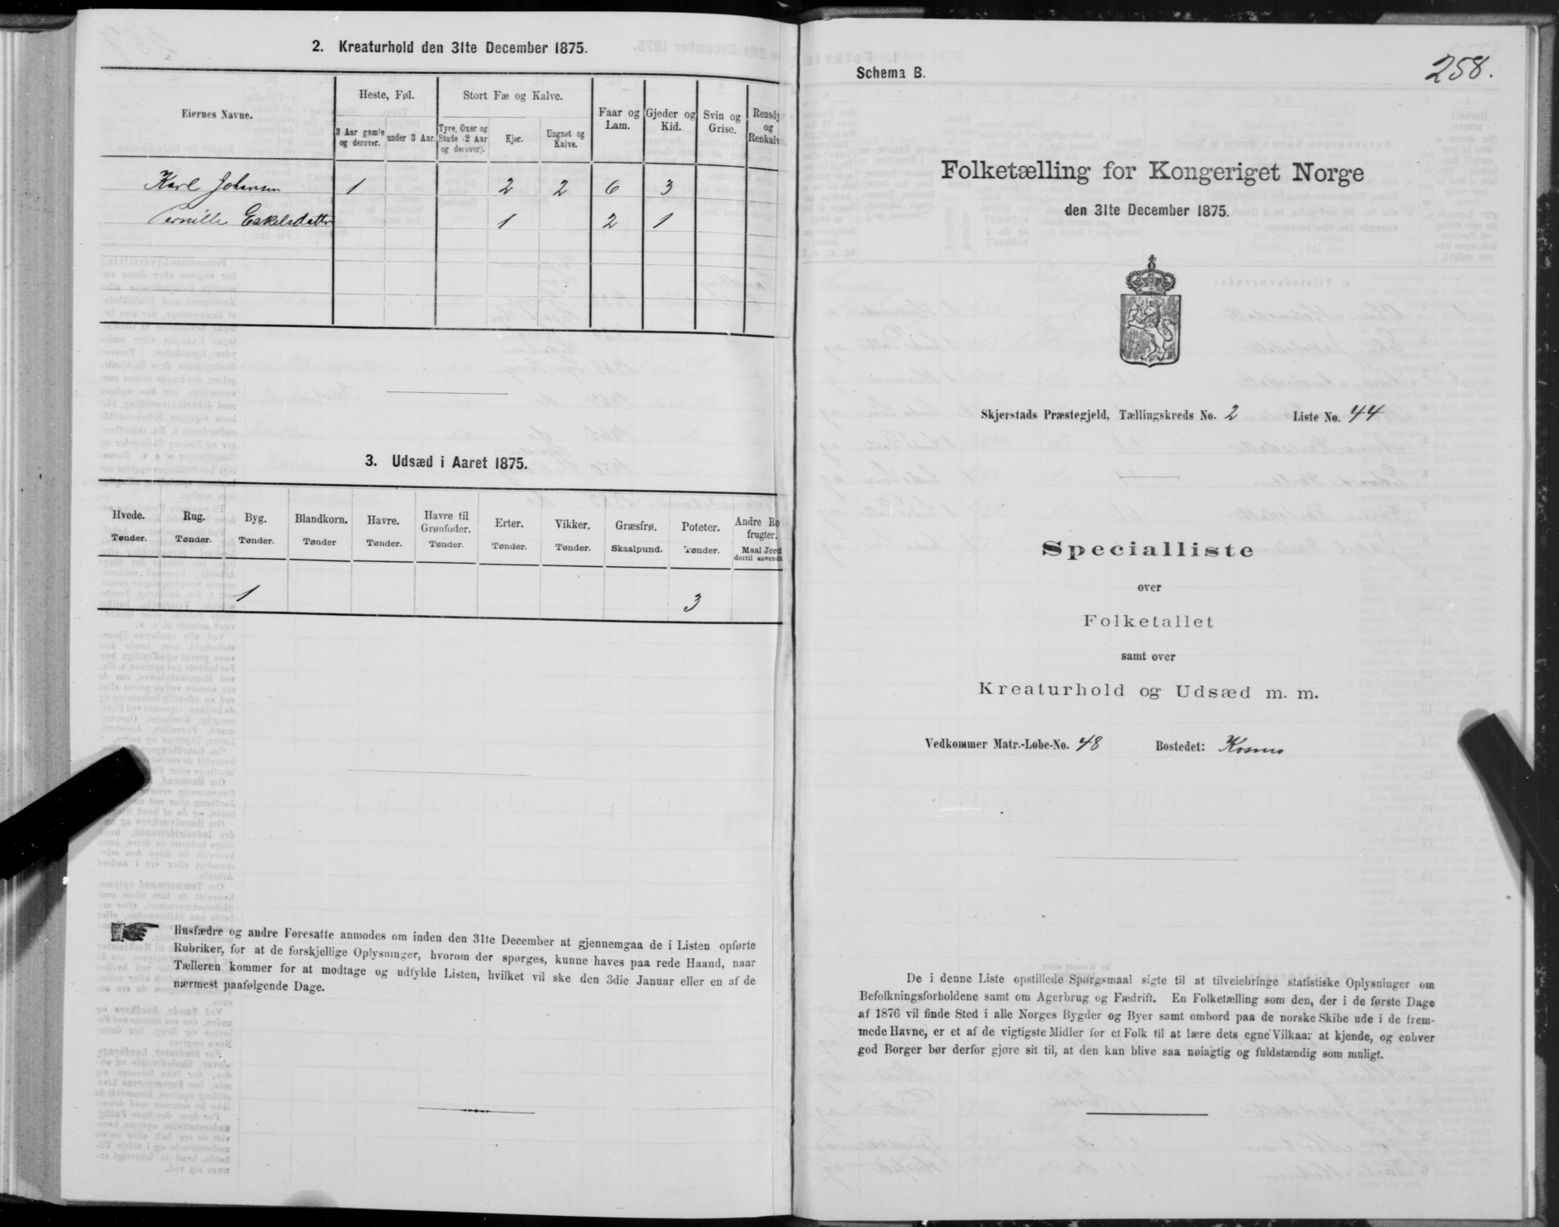 2. Kreaturhold den 31te December 1875.
Eiernes Navne.
Heste, Føl.
Stort Fæ og Kalve.
Faar og Lam.
Gjeder og Kid.
Svin og Grise.
Rensdy og Renkalv
3 Aar gamle og derover.
under 3 Aar.
Tyre, Oxer og Stude (2 Aar og derover).
Kjør.
Ungnøt og Kalve.
Karl Johansen 1 2 2 6 3
Pernille Eskelsdatter 1 2 1
3. Udsæd i Aaret 1875.
Hvede. Rug. Byg. Blandkorn. Havre. Havre til Grønfoder. Erter. Vikker. Græsfrø. Poteter. Andre Ro frugter.
Tønder. Tønder. Tønder. Tønder Tønder. Tønder. Tønder. Tønder. Skaalpund. Tønder. Maal Jord dertil anvendt
1 3
Husfædre og andre Foresatte anmodes om inden den 31te December at gjennemgaa de i Listen opførte
Rubriker, for at de forskjellige Oplysninger, hvorom der spørges, kunne haves paa rede Haand, naar
Tælleren kommer for at modtage og udfylde Listen, hvilket vil ske den 3die Januar eller en af de
nærmest paafølgende Dage.
Schema B.
258.
Folketælling for Kongeriget Norge
den 31te December 1875.
Skjerstads Præstegjeld, Tællingskreds No. 2 Liste No. 44
Specialliste
over
Folketallet
samt over
Kreaturhold og Udsæd m. m.
Vedkommer Matr.-Løbe-No. 48 Bostedet: Kosmo
De i denne Liste opstillede Spørgsmaal sigte til at tilveiebringe statistiske Oplysninger om
Befolkningsforholdene samt om Agerbrug og Fædrift. En Folketælling som den, der i de første Dage
af 1876 vil finde Sted i alle Norges Bygder og Byer samt ombord paa de norske Skibe ude i de frem-
mede Havne, er et af de vigtigste Midler for et Folk til at lære dets egne Vilkaar at kjende, og enhver
god Borger bør derfor gjøre sit til, at den kan blive saa nøiagtig og fuldstændig som muligt.